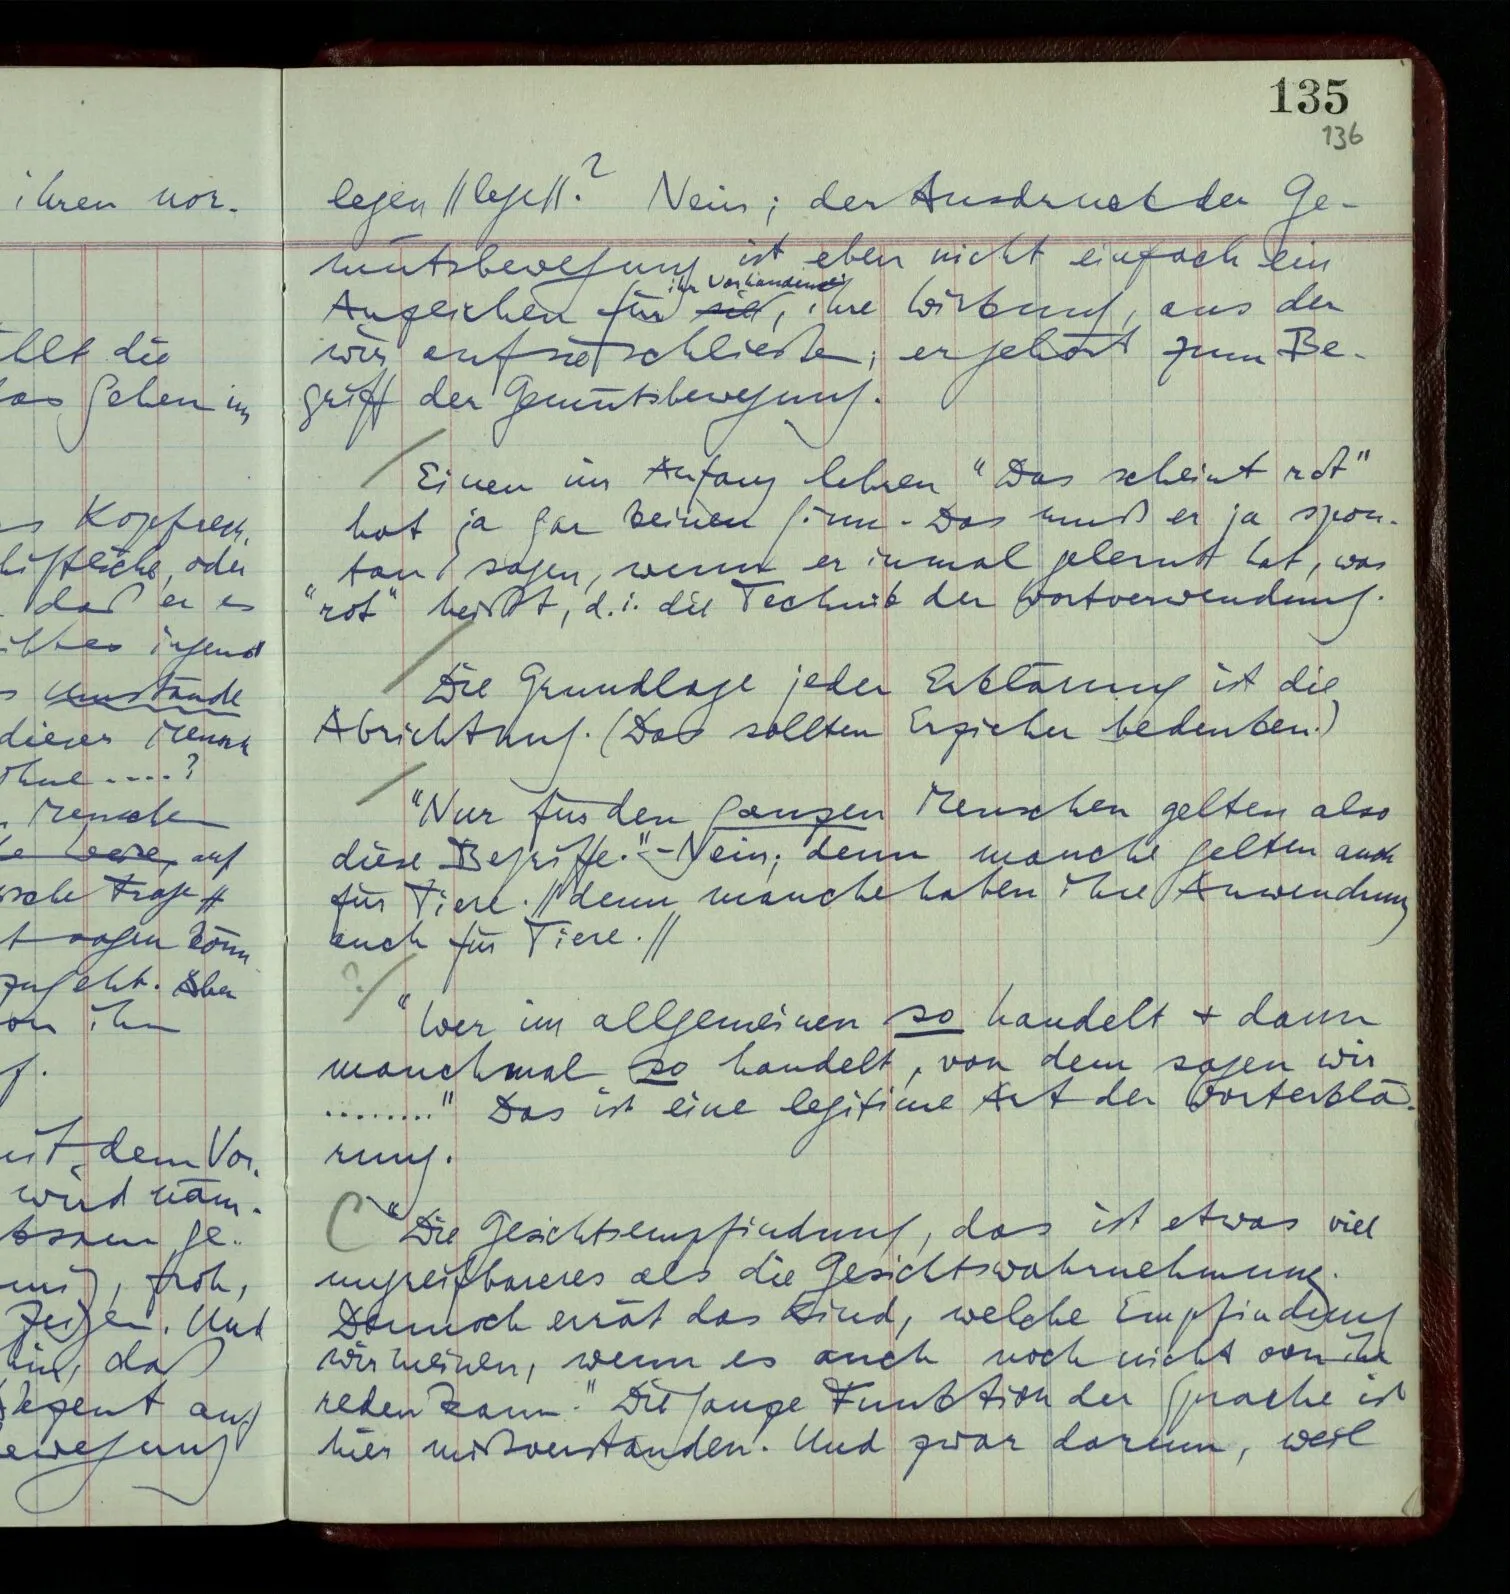 135
136
ihren vor-
llt die
das Gehen im
Kopfrech.
oder
daß er es
Umstände
dieser Mensch
ohne ....?
Menschen
auf
sche Frage //
t sagen könn
zugeht. Aber
von ihm
f.
mit dem Vor.
wird näm-
tsam ge-
froh,
zeigen. Und
hin, daß
Akzent auf
ewegung
legen // lege //? Nein; der Ausdruck der Ge-
mütsbewegung ist eben nicht einfach ein
ihr Vorhandensein
Anzeichen für sie, ihre Wirkung, aus der
wir auf sie schließen; er gehört zum Be-
griff der Gemütsbewegung.
/ Einen im Anfang lehren "Das scheint rot"
hat ja gar keinen Sinn. Das muß er ja spon-
tan sagen, wenn er inmal gelernt hat, was
"rot" heißt, d.i. die Technik der Wortverwendung.
/ Die Grundlage jeder Erklärung ist die
Abrichtung. (Das sollten Erzieher bedenken.)
/ "Nur für den ganzen Menschen gelten also
diese Begriffe." – Nein; denn manche gelten auch
für Tiere. // denn manche haben ihre Anwendung
auch für Tiere. //
?/ "Wer im allgemeinen so handelt + dann
manchmal so handelt, von dem sagen wir
........" Das ist eine legitime Art der Worterklä-
rung.
C "Die Gesichtsempfindung, das ist etwas viel
ungreifbareres als die Gesichtswahrnehmung.
Dennoch errät das Kind, welche Empfindung
wir meinen, wenn es auch noch nicht von ihr
reden kann." Die ganze Funktion der Sprache ist
hier mißverstanden. Und zwar darum, weil